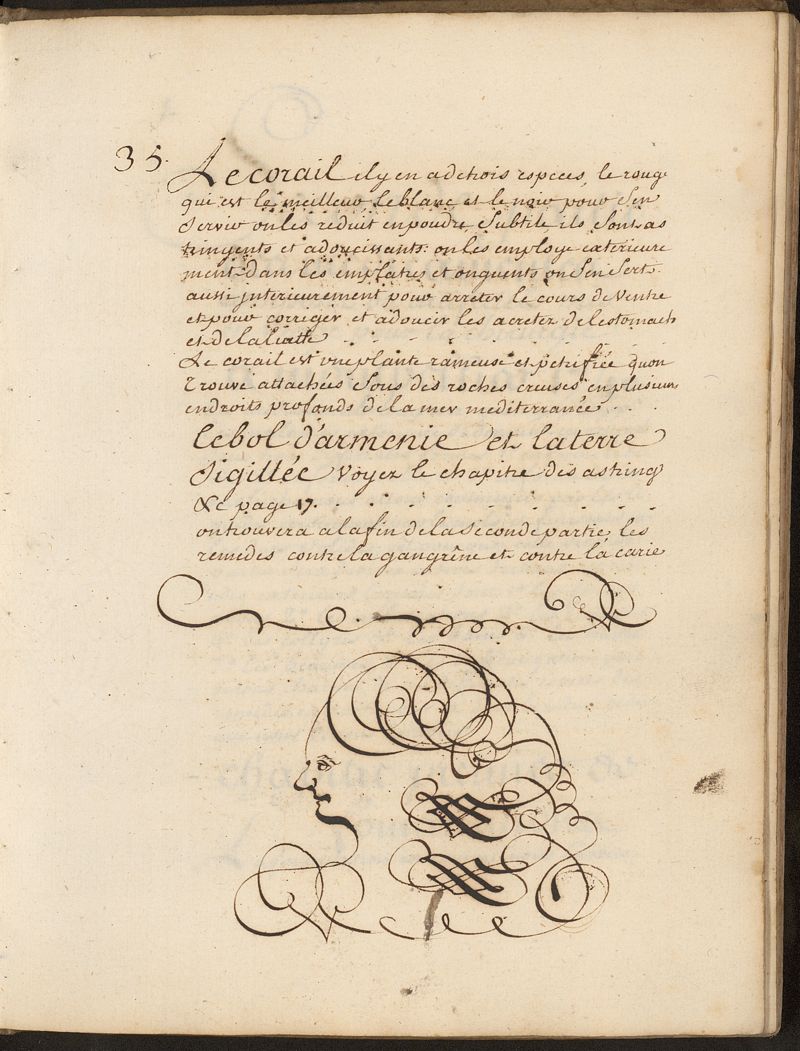 35. Le corail il y en a de trois especes, le rouge
qui est le meilleur le blanc et le noir pour sen
servir on les réduit en poudre subtile ils sont as
tringents et adoucissants: on les employe exterieure
ment dans les emplatres et onguents on sen sert
aussi jnterieurement pour arreter le cours de ventre
et pour corriger et adoucir les acretez de lestomach
et de la
Le corail est une plante rameuse et petrifiée quon
trouve attachées sous des roches creuses en plusieurs
endroits profonds de la mer mediterranée
le bol d'armenie et la terre
sigillée voyez le chapitre des astring
&c page 17.
on trouvera a la fin de la seconde partie les
remedes contre la gangrêne et contre la carie